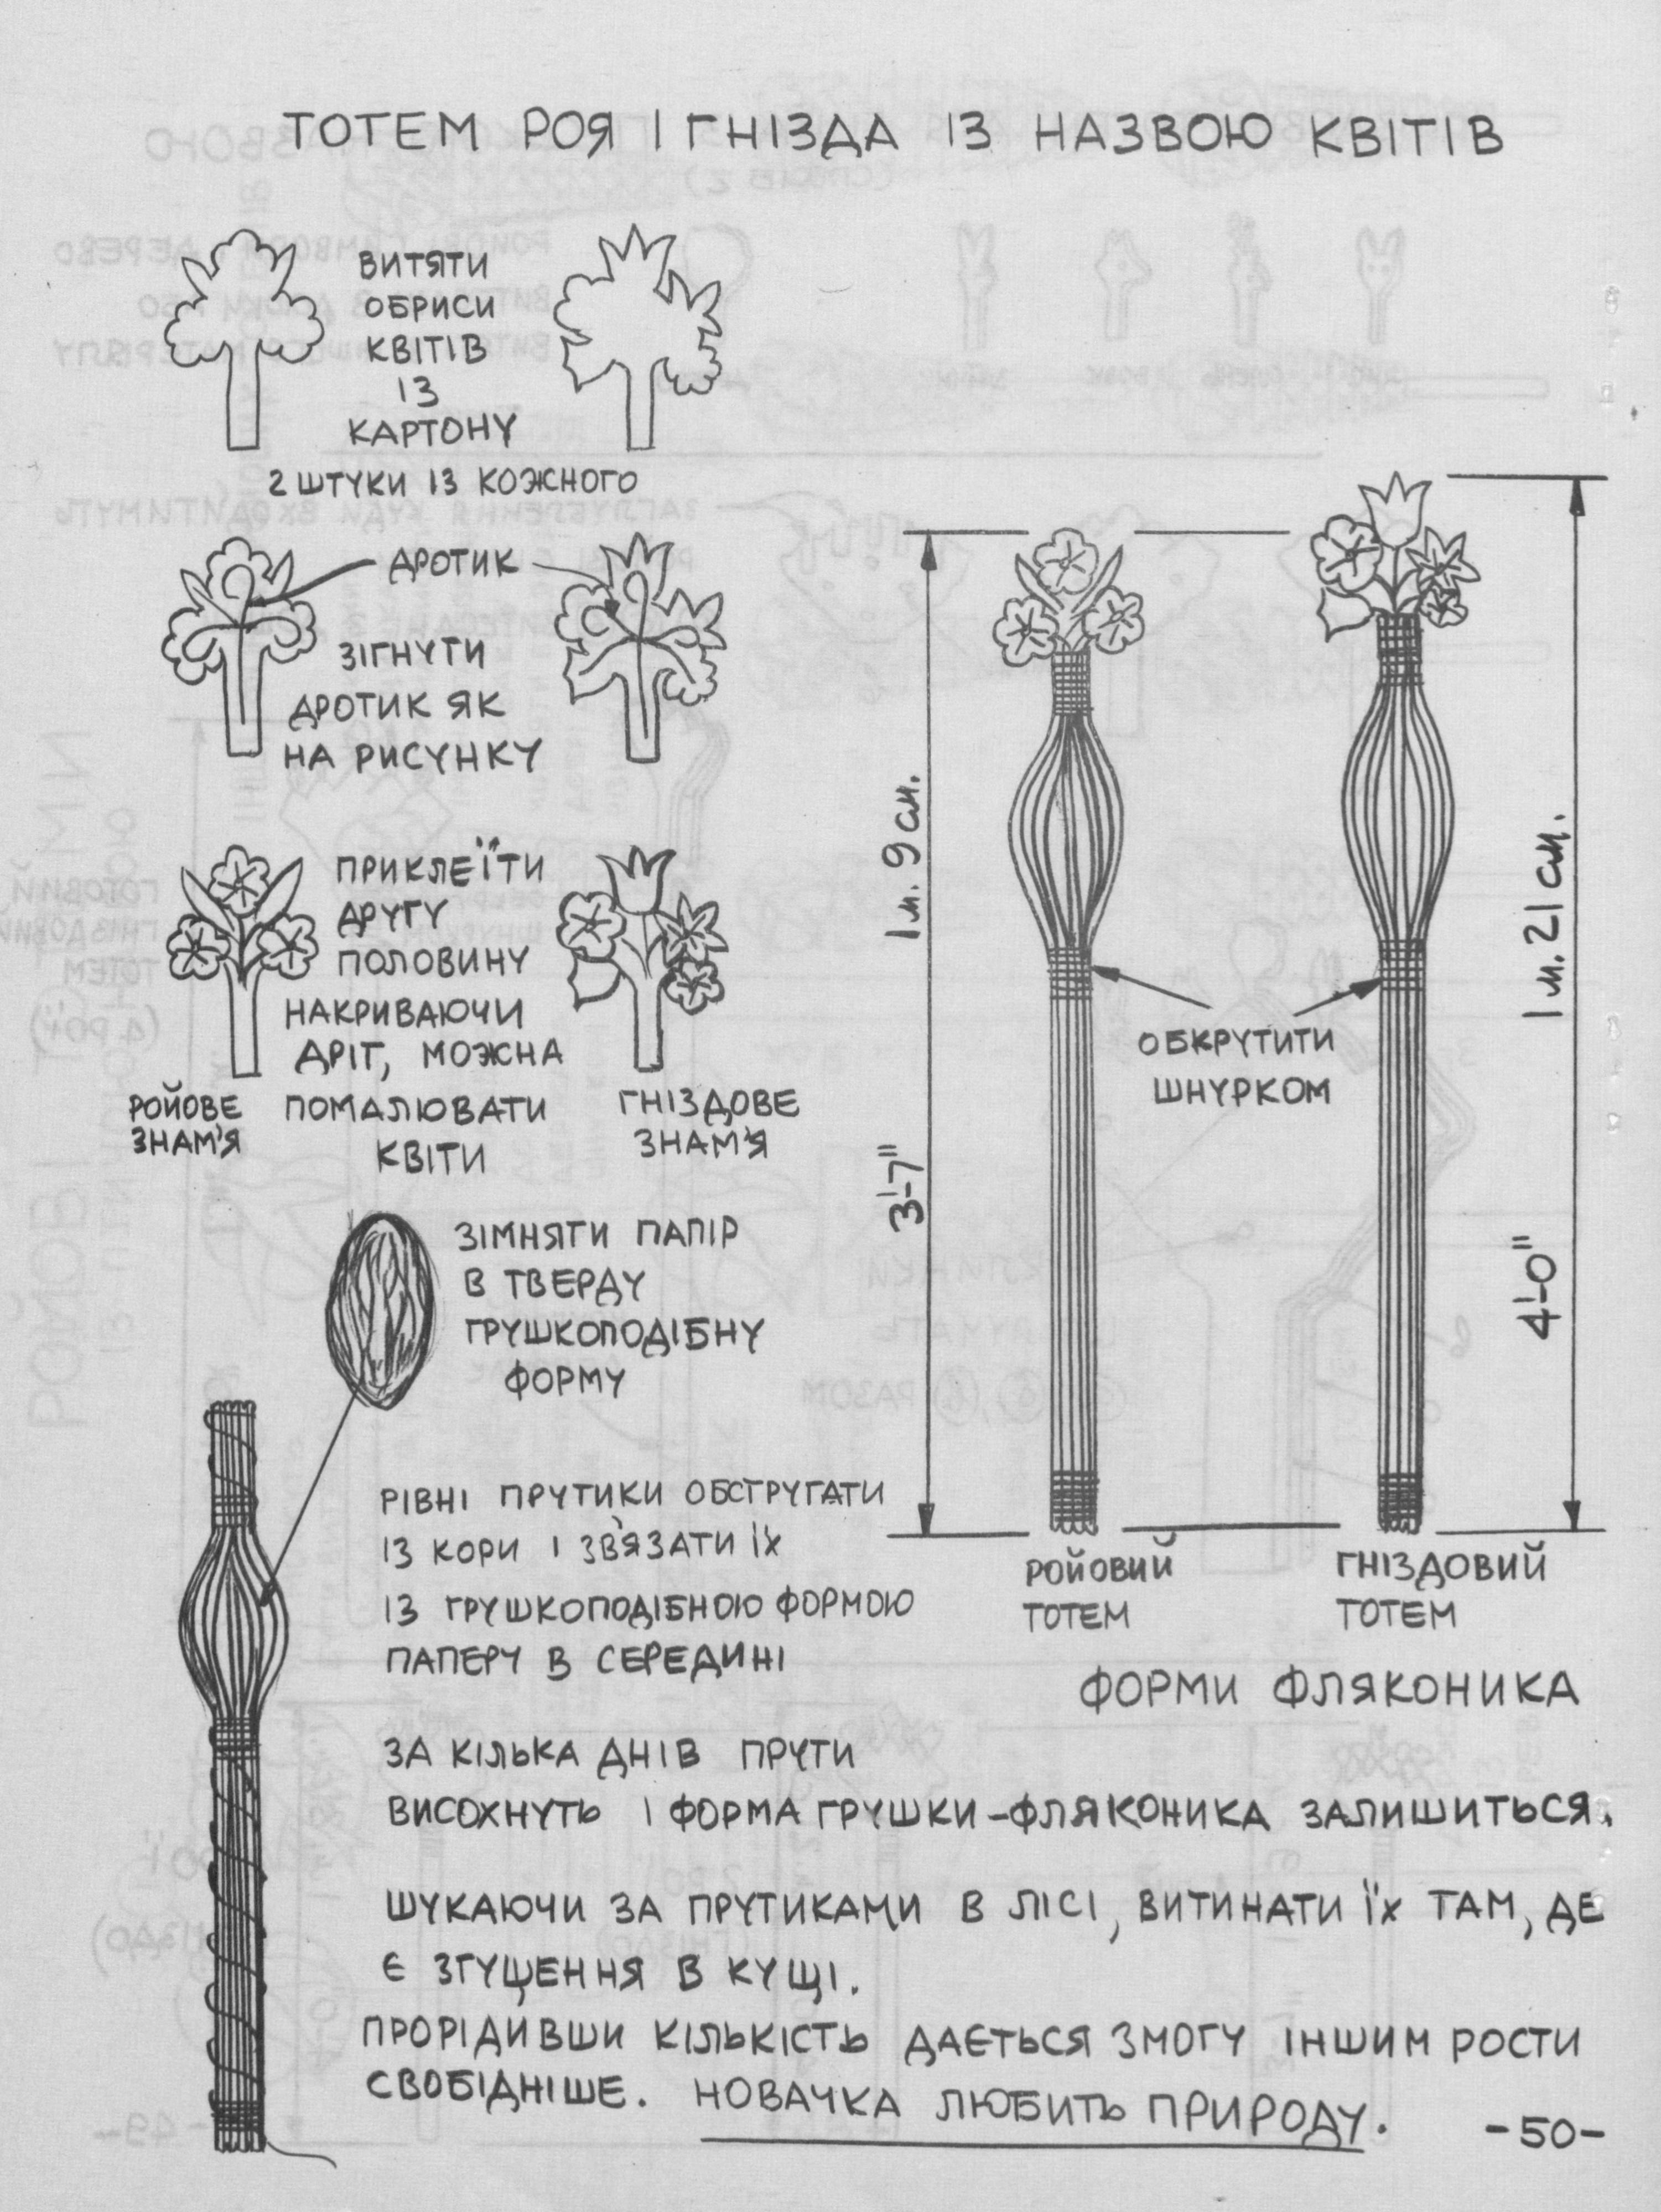 ТОТЕМ РОЯ І ГНІЗДА ІЗ НАЗВОЮ КВІТІВ
ВИТЯТИ
ОБРИСИ
КВІТІВ
ІЗ
КАРТОНУ
2 ШТУКИ ІЗ КОЖНОГО
ДРОТИК
ЗІГНУТИ
ДРОТИК ЯК
НА РИСУНКУ
ПРИКЛЕЇТИ
ДРУГУ
ПОЛОВИНУ
НАКРИВАЮЧИ
ДРІТ, МОЖНА
ПОМАЛЮВАТИ
КВІТИ
РОЙОВЕ
ЗНАМ'Я
ГНІЗДОВЕ
ЗНАМ'Я
ЗІМНЯТИ ПАПІР
В ТВЕРДУ
ГРУШКОПОДІБНУ
ФОРМУ
РІВНІ ПРУТИКИ ОБСТРУГАТИ
ІЗ КОРИ І ЗВ'ЯЗАТИ ЇХ
ІЗ ГРУШКОПОДІБНОЮ ФОРМОЮ
ПАПЕРУ В СЕРЕДИНІ
1 м. 9 см.
3'-7"
1 м. 21 см.
4'-0"
ОБКРУТИТИ
ШНУРКОМ
РОЙОВИЙ
ТОТЕМ
ГНІЗДОВИЙ
ТОТЕМ
ФОРМИ ФЛЯКОНИКА
ЗА КІЛЬКА ДНІВ ПРУТИ
ВИСОХНУТЬ І ФОРМА ГРУШКИ-ФЛЯКОНИКА ЗАЛИШИТЬСЯ.
ШУКАЮЧИ ЗА ПРУТИКАМИ В ЛІСІ, ВИТИНАТИ ЇХ ТАМ, ДЕ
Є ЗГУЩЕННЯ В КУЩІ.
ПРОРІДИВШИ КІЛЬКІСТЬ ДАЄТЬСЯ ЗМОГУ ІНШИМ РОСТИ
СВОБІДНІШЕ. НОВАЧКА ЛЮБИТЬ ПРИРОДУ.
-50-